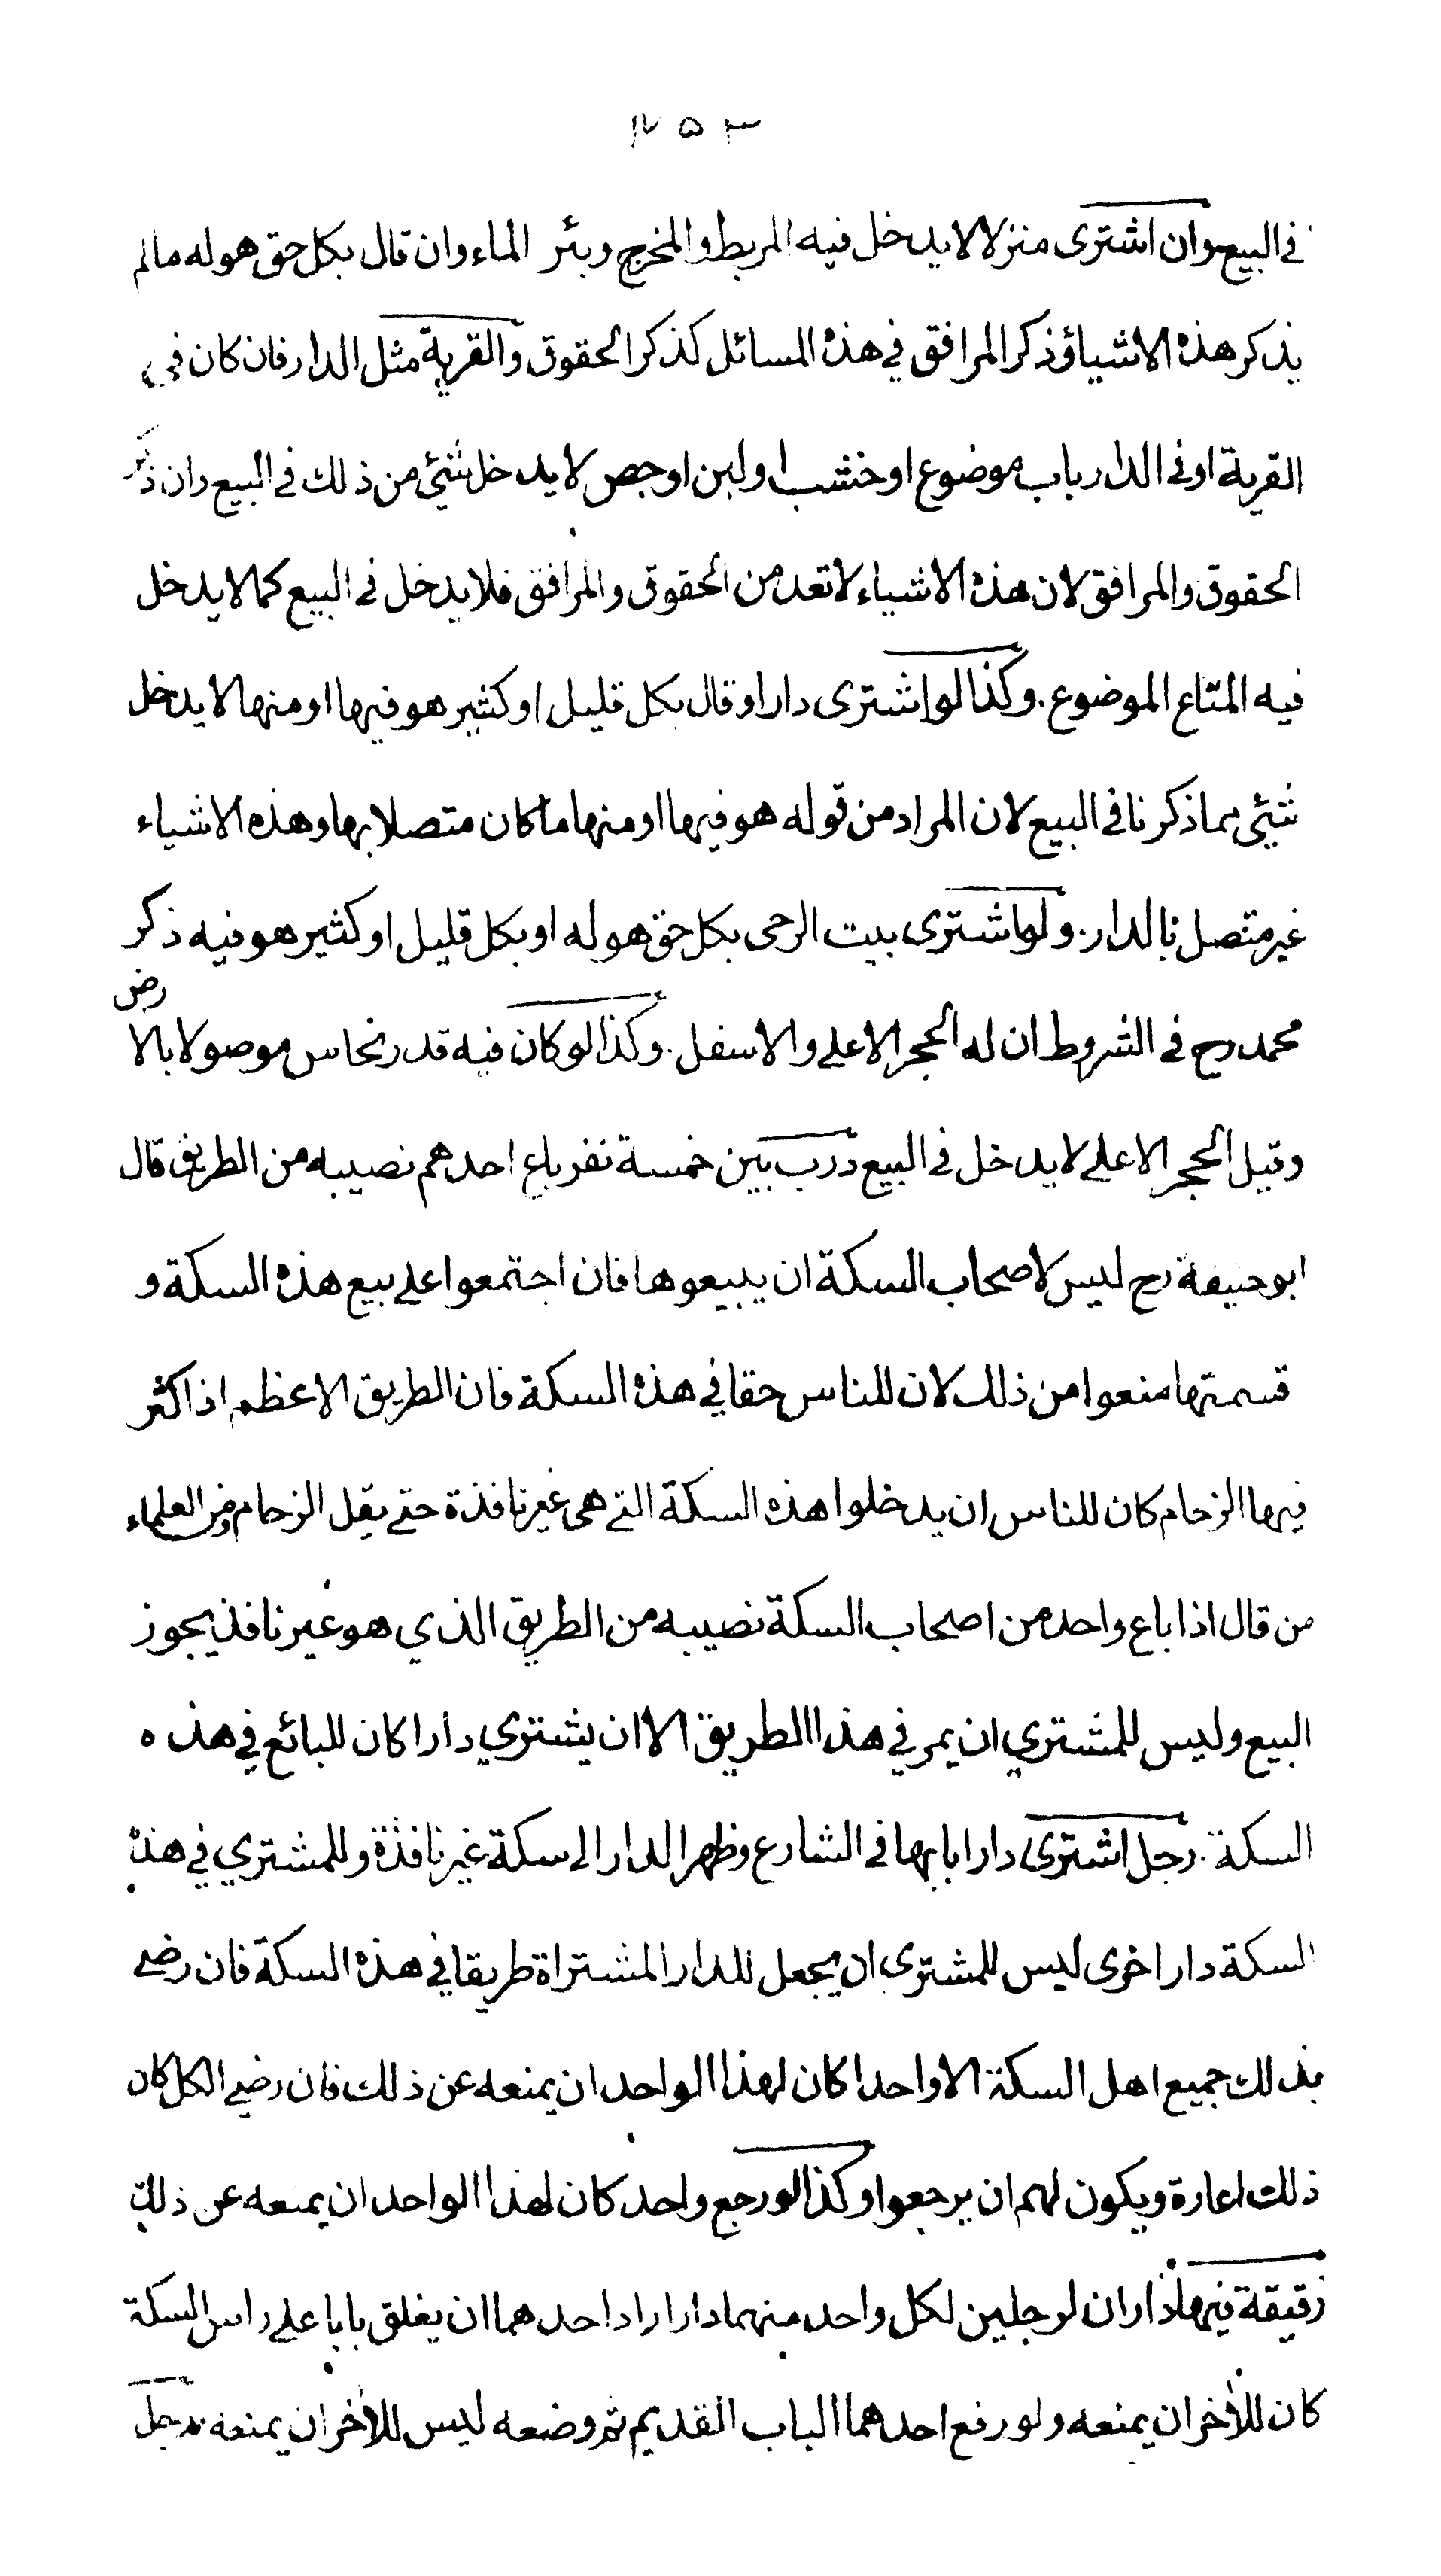 ٢٥٣
في البيع وان اشترى منزلا لا يدخل فيه المربط والمخرج وبئر الماء وان قال بكل حق هو له مالم
يذكر هذه الاشياء وذكر المرافق في هذه المسائل كذكر الحقوق والقرية مثل الدار فان كان في
القرية او في الدار باب موضوع او خشب او لبن او جص لا يدخل شئي من ذلك في البيع وان ذكر
الحقوق والمرافق لان هذه الاشياء لا تعد من الحقوق والمرافق فلا يدخل في البيع كما لا يدخل
فيه المتاع الموضوع . وكذا لو اشترى دارا وقال بكل قليل او كثير هو فيها او منها لا يدخل
شئي مما ذكرنا في البيع لان المراد من قوله هو فيها او منها ما كان متصلا بها وهذه الاشياء
غير متصل بالدار . ولو اشترى بيت الرحى بكل حق هو له او بكل قليل او كثير هو فيه ذكر
محمد رح في الشروط ان له الحجر الاعلى والاسفل . وكذا لو كان فيه قدر نحاس موصولا بالارض
وقيل الحجر الاعلى لا يدخل في البيع درب بين خمسة نفر باع احدهم نصيبه من الطريق قال
ابو حنيفة رح ليس لاصحاب السكة ان يبيعوها فان اجتمعوا على بيع هذه السكة و
قسمتها منعوا من ذلك لان للناس حقا في هذه السكة فان الطريق الاعظم اذا كثر
فيها الزحام كان للناس ان يدخلوا هذه السكة التي هي غير نافذة حتى يقل الزحام ومن العلماء
من قال اذا باع واحد من اصحاب السكة نصيبه من الطريق الذي هو غير نافذ يجوز
البيع وليس للمشتري ان يمر في هذا الطريق الا ان يشتري دارا كان للبائع في هذه
السكة . رجل اشترى دارا بابها في الشارع وظهر الدار الى سكة غير نافذة وللمشتري في هذه
السكة دار اخرى ليس للمشترى ان يجعل للدار المشتراة طريقا في هذه السكة فان رضي
بذلك جميع اهل السكة الا واحدا كان لهذا الواحد ان يمنعه عن ذلك فان رضي الكل كان
ذلك اعارة ويكون لهم ان يرجعوا وكذا لو رجع واحد كان لهذا الواحد ان يمنعه عن ذلك
زقيقة فيها داران لرجلين لكل واحد منهما دار اراد احدهما ان يغلق بابا على راس السكة
كان للآخر ان يمنعه ولو رفع احدهما الباب القديم ثم وضعه ليس للآخر ان يمنعه رجل